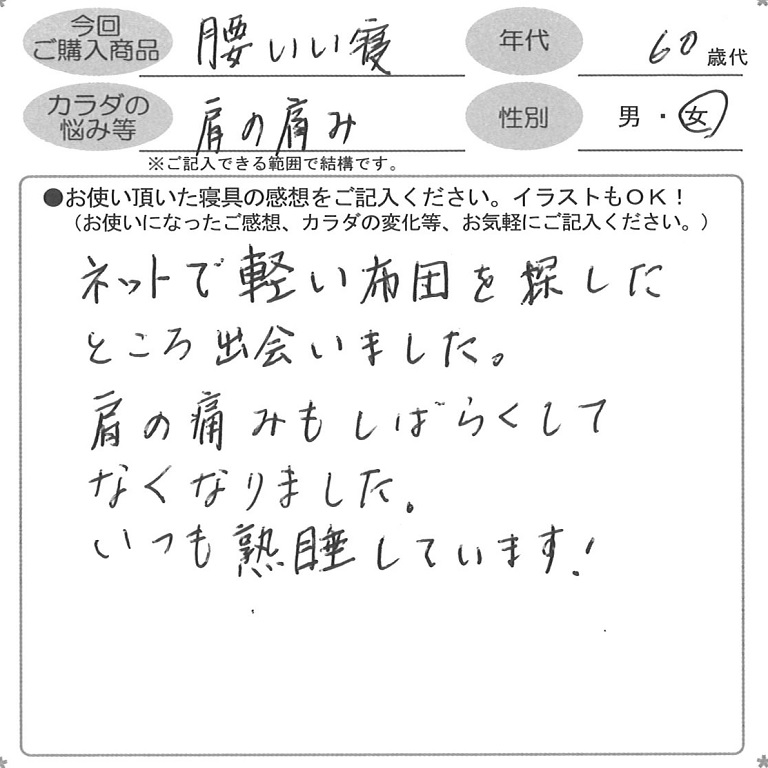 今回
ご購入商品
腰いい寝
年代
60歳代
カラダの
悩み等
肩の痛み
性別
男・女
※ご記入できる範囲で結構です。
●お使い頂いた寝具の感想をご記入ください。イラストもOK！
（お使いになったご感想、カラダの変化等、お気軽にご記入ください。）
ネットで軽い布団を探した
ところ出会いました。
肩の痛みもしばらくして
なくなりました。
いつも熟睡しています！